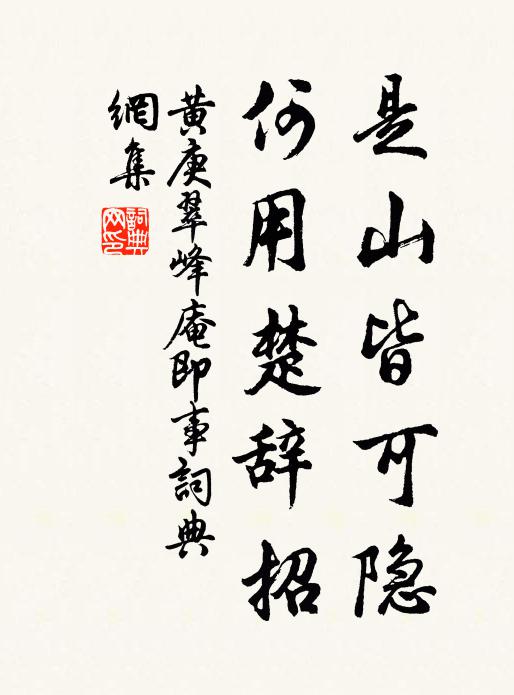 是山皆可隐
何用楚辞招
黄庚翠峰庵即事詞典
網集
詞典
网印